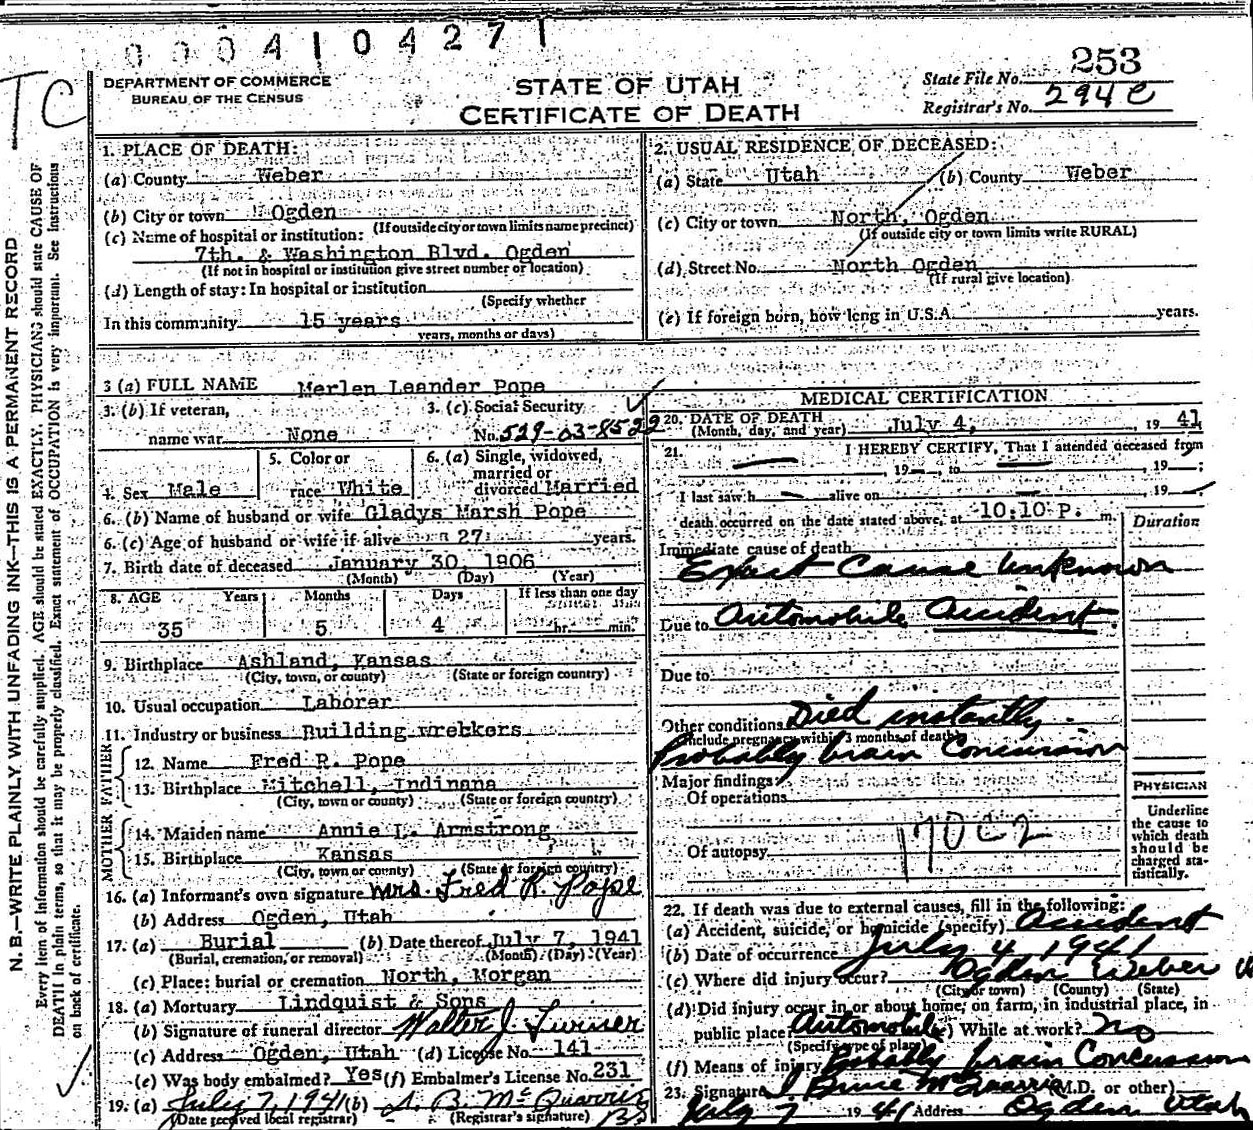 0004104271
TC
DEPARTMENT OF COMMERCE
BUREAU OF THE CENSUS
STATE OF UTAH
CERTIFICATE OF DEATH
State File No. 253
Registrar's No. 294 C
N. B.—WRITE PLAINLY WITH UNFADING INK—THIS IS A PERMANENT RECORD
Every item of information should be carefully supplied. AGE should be stated EXACTLY. PHYSICIANS should state CAUSE OF
DEATH in plain terms, so that it may be properly classified. Exact statement of OCCUPATION is very important. See instructions
on back of certificate.
1. PLACE OF DEATH:
(a) County Weber
(b) City or town Ogden
(If outside city or town limits name precinct)
(c) Name of hospital or institution:
7th. & Washington Blvd. Ogden
(If not in hospital or institution give street number or location)
(d) Length of stay: In hospital or institution
(Specify whether
In this community 15 years
years, months or days)
2. USUAL RESIDENCE OF DECEASED:
(a) State Utah (b) County Weber
(c) City or town North, Ogden
(If outside city or town limits write RURAL)
(d) Street No. North Ogden
(If rural give location)
(e) If foreign born, how long in U.S.A. years.
3 (a) FULL NAME Merlen Leander Pope
3. (b) If veteran, 3. (c) Social Security
name war None No. 529-03-8522
4. Sex Male
5. Color or
race White
6. (a) Single, widowed,
married or
divorced Married
6. (b) Name of husband or wife Gladys Marsh Pope
6. (c) Age of husband or wife if alive 27 years.
7. Birth date of deceased January 30, 1906
(Month) (Day) (Year)
8. AGE Years Months Days If less than one day
35 5 4 hr. min.
9. Birthplace Ashland, Kansas
(City, town, or county) (State or foreign country)
10. Usual occupation Laborer
11. Industry or business Building wreckers
FATHER
12. Name Fred R. Pope
13. Birthplace Mitchell, Indinana
(City, town or county) (State or foreign country)
MOTHER
14. Maiden name Annie L. Armstrong
15. Birthplace Kansas
(City, town or county) (State or foreign country)
16. (a) Informant's own signature Mrs. Fred R. Pope
(b) Address Ogden, Utah
17. (a) Burial (b) Date thereof July 7, 1941
(Burial, cremation, or removal) (Month) (Day) (Year)
(c) Place: burial or cremation North, Morgan
18. (a) Mortuary Lindquist & Sons
(b) Signature of funeral director Walter J.
(c) Address Ogden, Utah (d) License No. 141
(e) Was body embalmed? Yes (f) Embalmer's License No. 231
19. (a) July 7, 1941 (b) B. McQuarrie
(Date received local registrar) (Registrar's signature)
MEDICAL CERTIFICATION
20. DATE OF DEATH July 4, 1941
(Month, day, and year)
21. I HEREBY CERTIFY, That I attended deceased from
— , 19— , to — , 19— ;
I last saw h — alive on — , 19— ;
death occurred on the date stated above, at 10:10 P. m.
Duration
Immediate cause of death
Exact Cause Unknown
Due to Automobile Accident
Due to
Other conditions Died instantly.
(Include pregnancy within 3 months of death)
Probably brain Concussion
Major findings
Of operations
Of autopsy 170C2
PHYSICIAN
Underline
the cause to
which death
should be
charged sta-
tistically.
22. If death was due to external causes, fill in the following:
(a) Accident, suicide, or homicide (specify) Accident
(b) Date of occurrence July 4, 1941
(c) Where did injury occur? Ogden Weber U
(City or town) (County) (State)
(d) Did injury occur in or about home, on farm, in industrial place, in
public place? Automobile (e) While at work? no
(Specify type of place)
(f) Means of injury Probably brain Concussion
23. Signature I. Bruce McQuarrie (M.D. or other)
July 7 1941 Address Ogden Utah